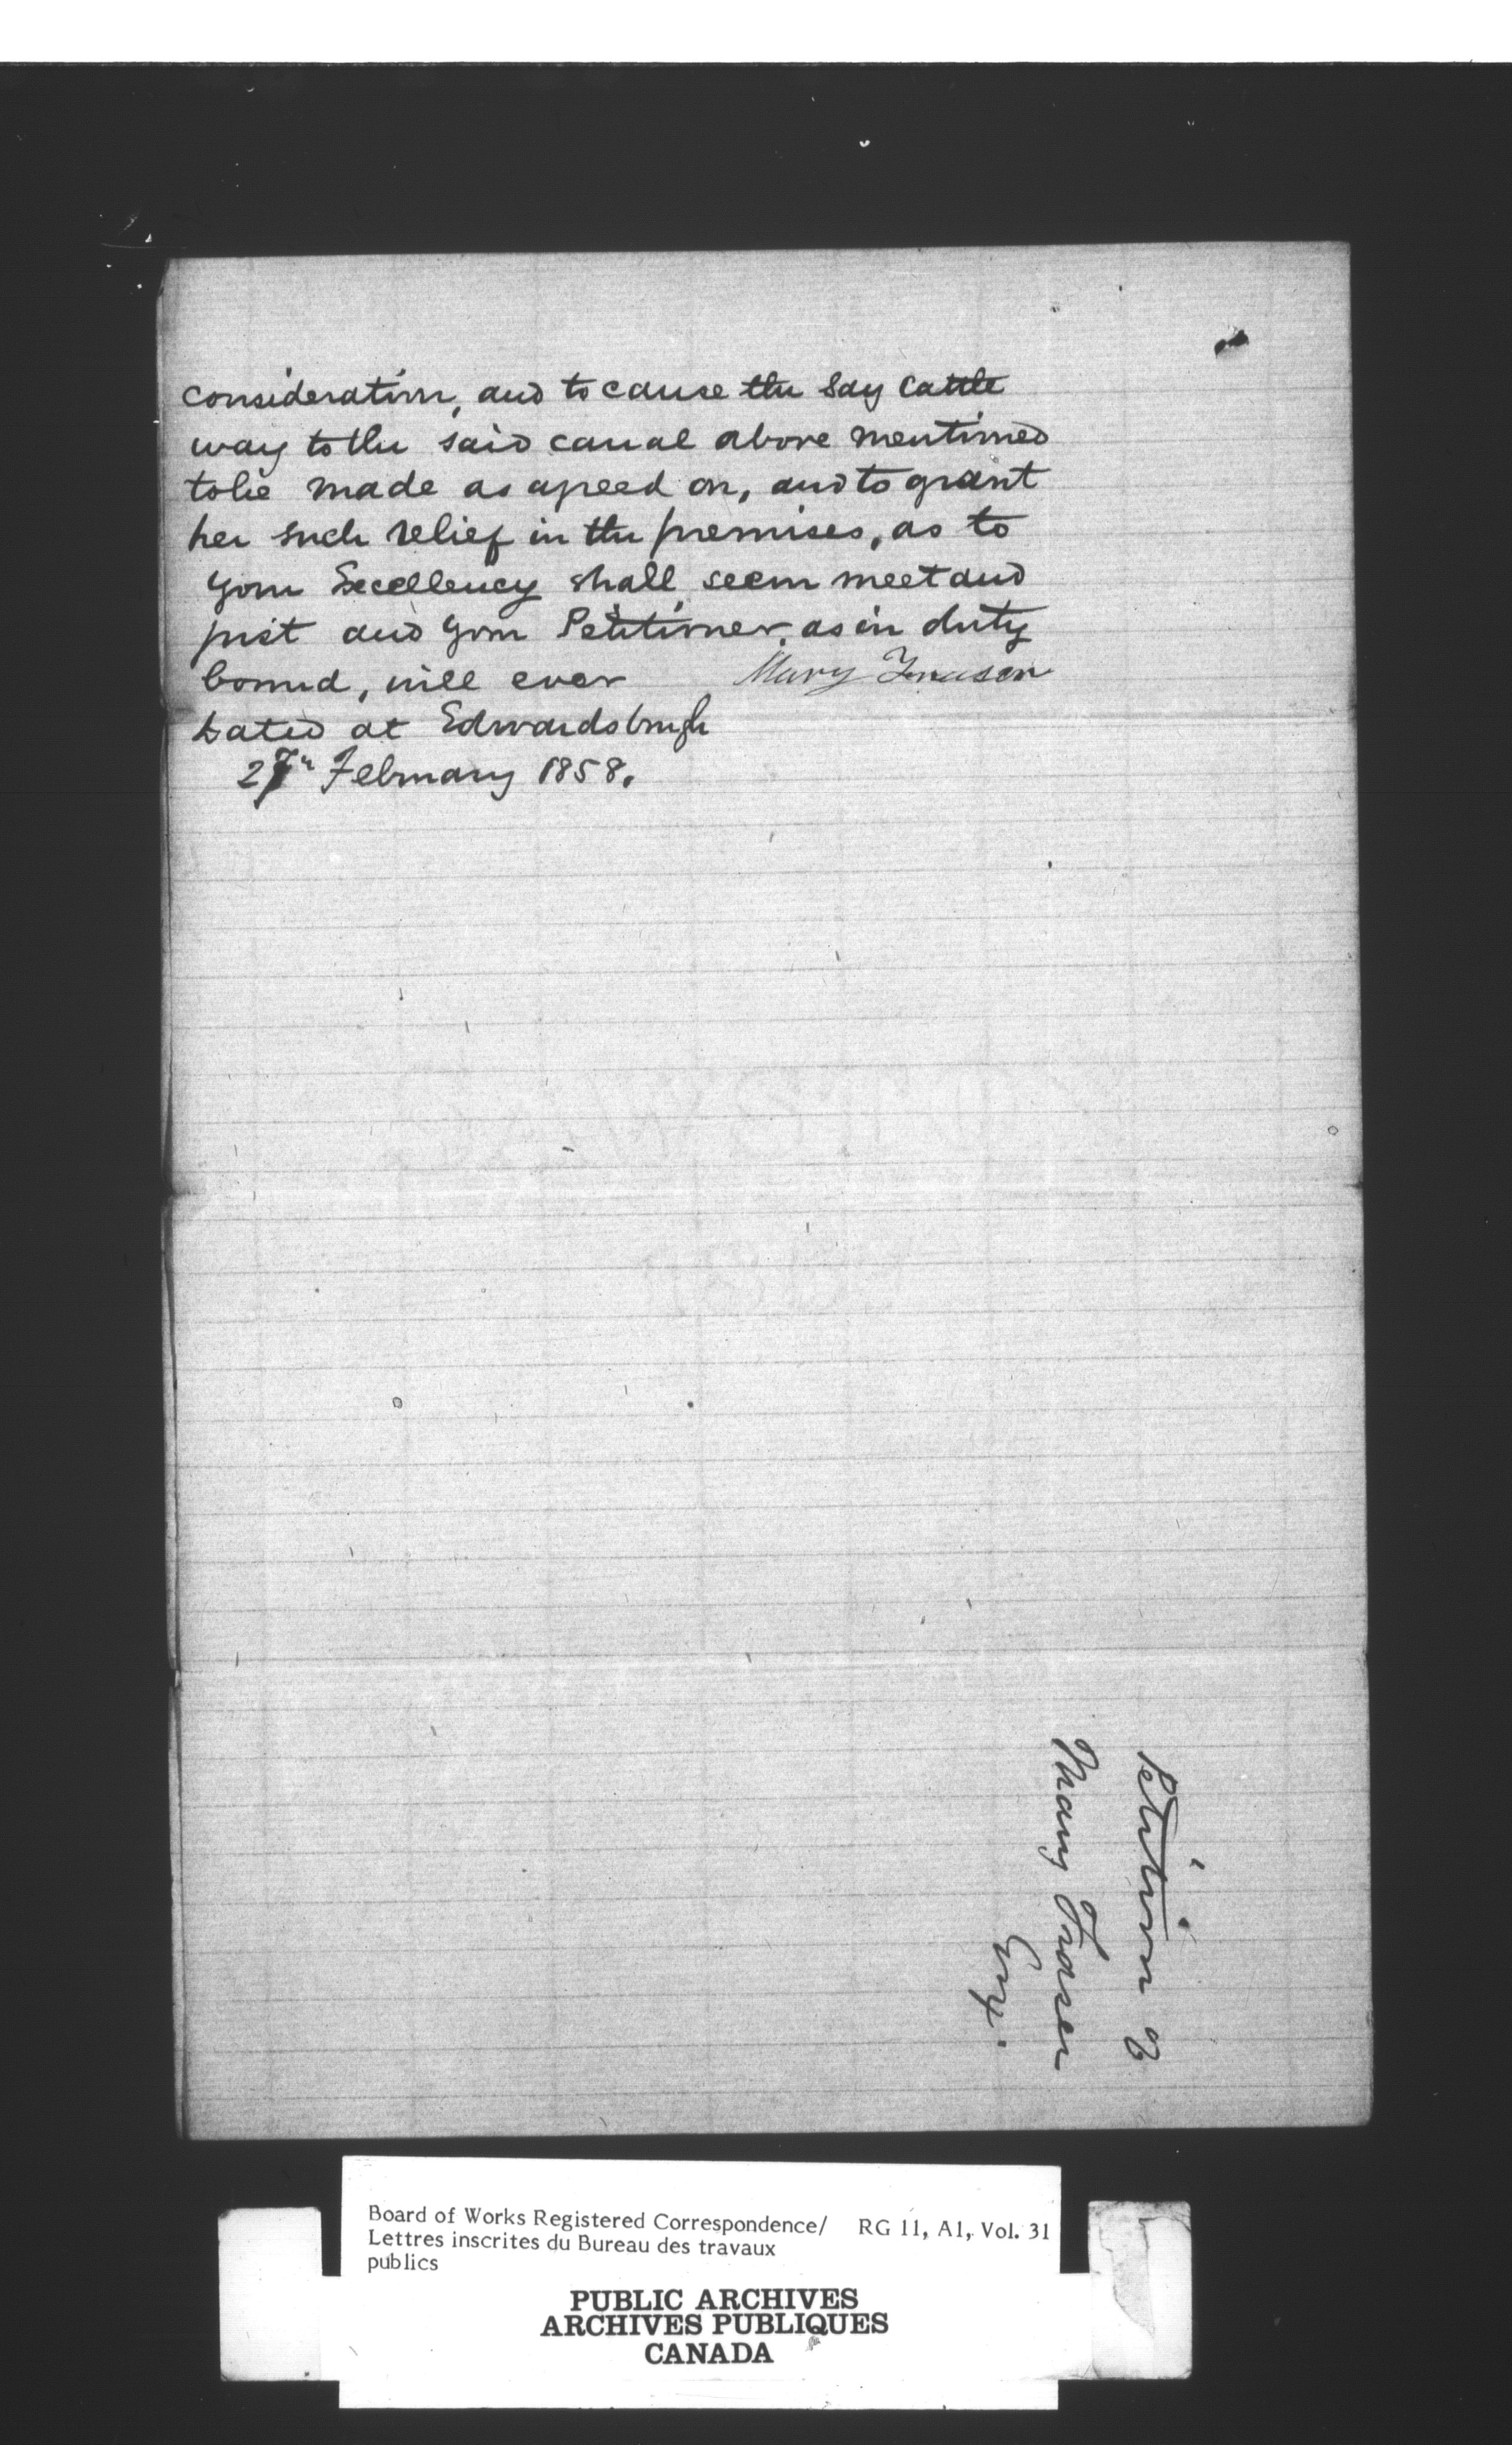 consideration, and to cause the say cattle
way to the said canal above mentioned
to be made as agreed on, and to grant
her such relief in the premises, as to
your Excellency shall seem meet and
just and your Petitioner, as in duty
bound, will ever Mary Fraser
Dated at Edwardsburgh
27th February 1858.
Petition of
Mary Fraser
Board of Works Registered Correspondence/ RG 11, A1, Vol. 31
Lettres inscrites du Bureau des travaux
publics
PUBLIC ARCHIVES
ARCHIVES PUBLIQUES
CANADA